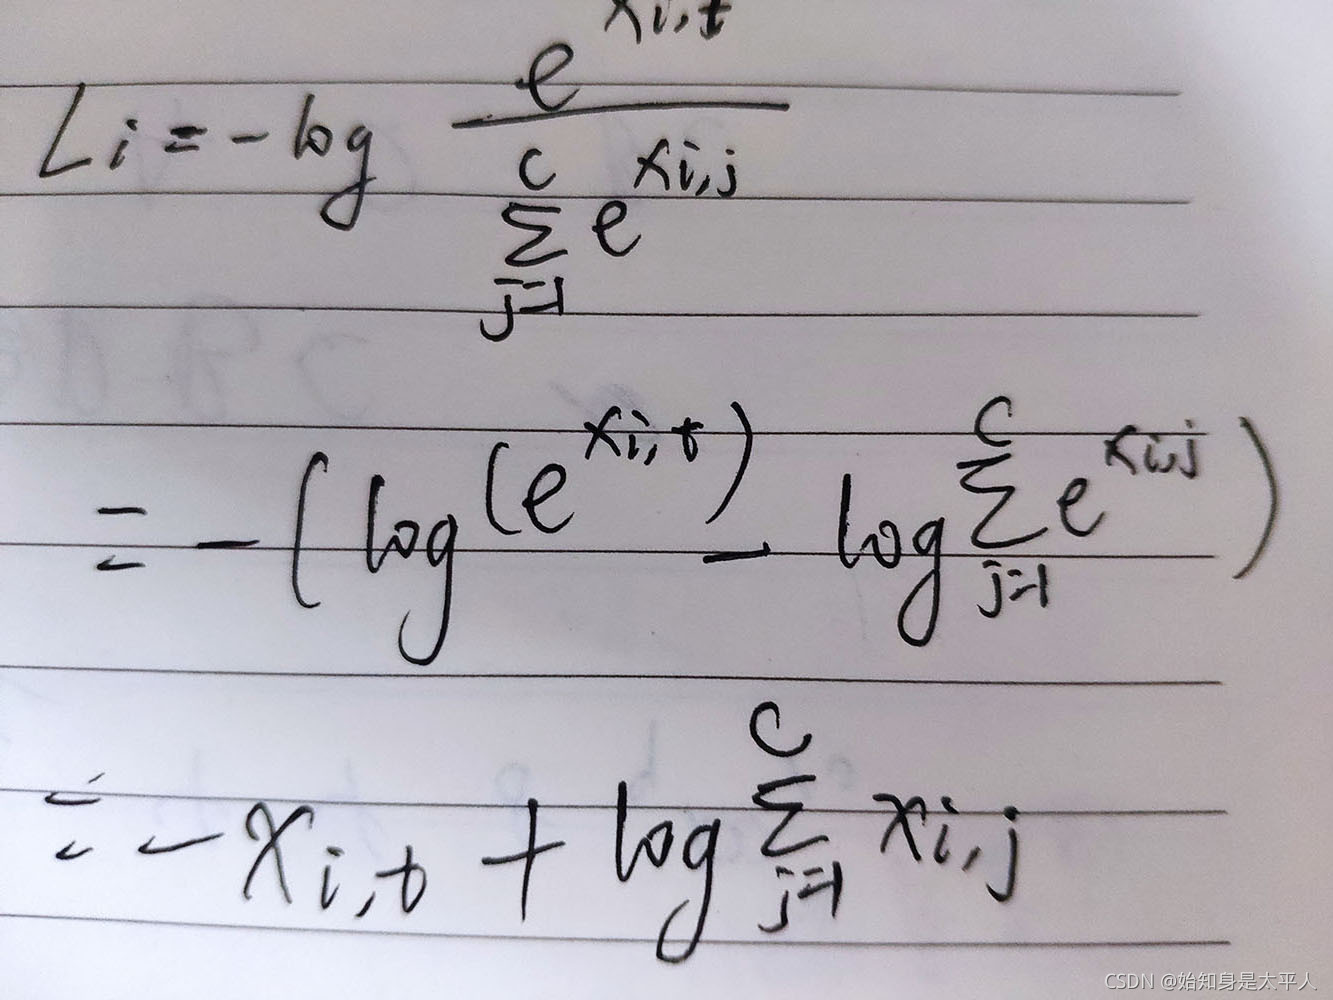 $L_i = -\log \frac{e^{x_{i,t}}}{\sum_{j=1}^{C} e^{x_{i,j}}}$
$= -(\log(e^{x_{i,t}}) - \log \sum_{j=1}^{C} e^{x_{i,j}})$
$= -x_{i,t} + \log \sum_{j=1}^{C} x_{i,j}$
CSDN @始知身是太平人